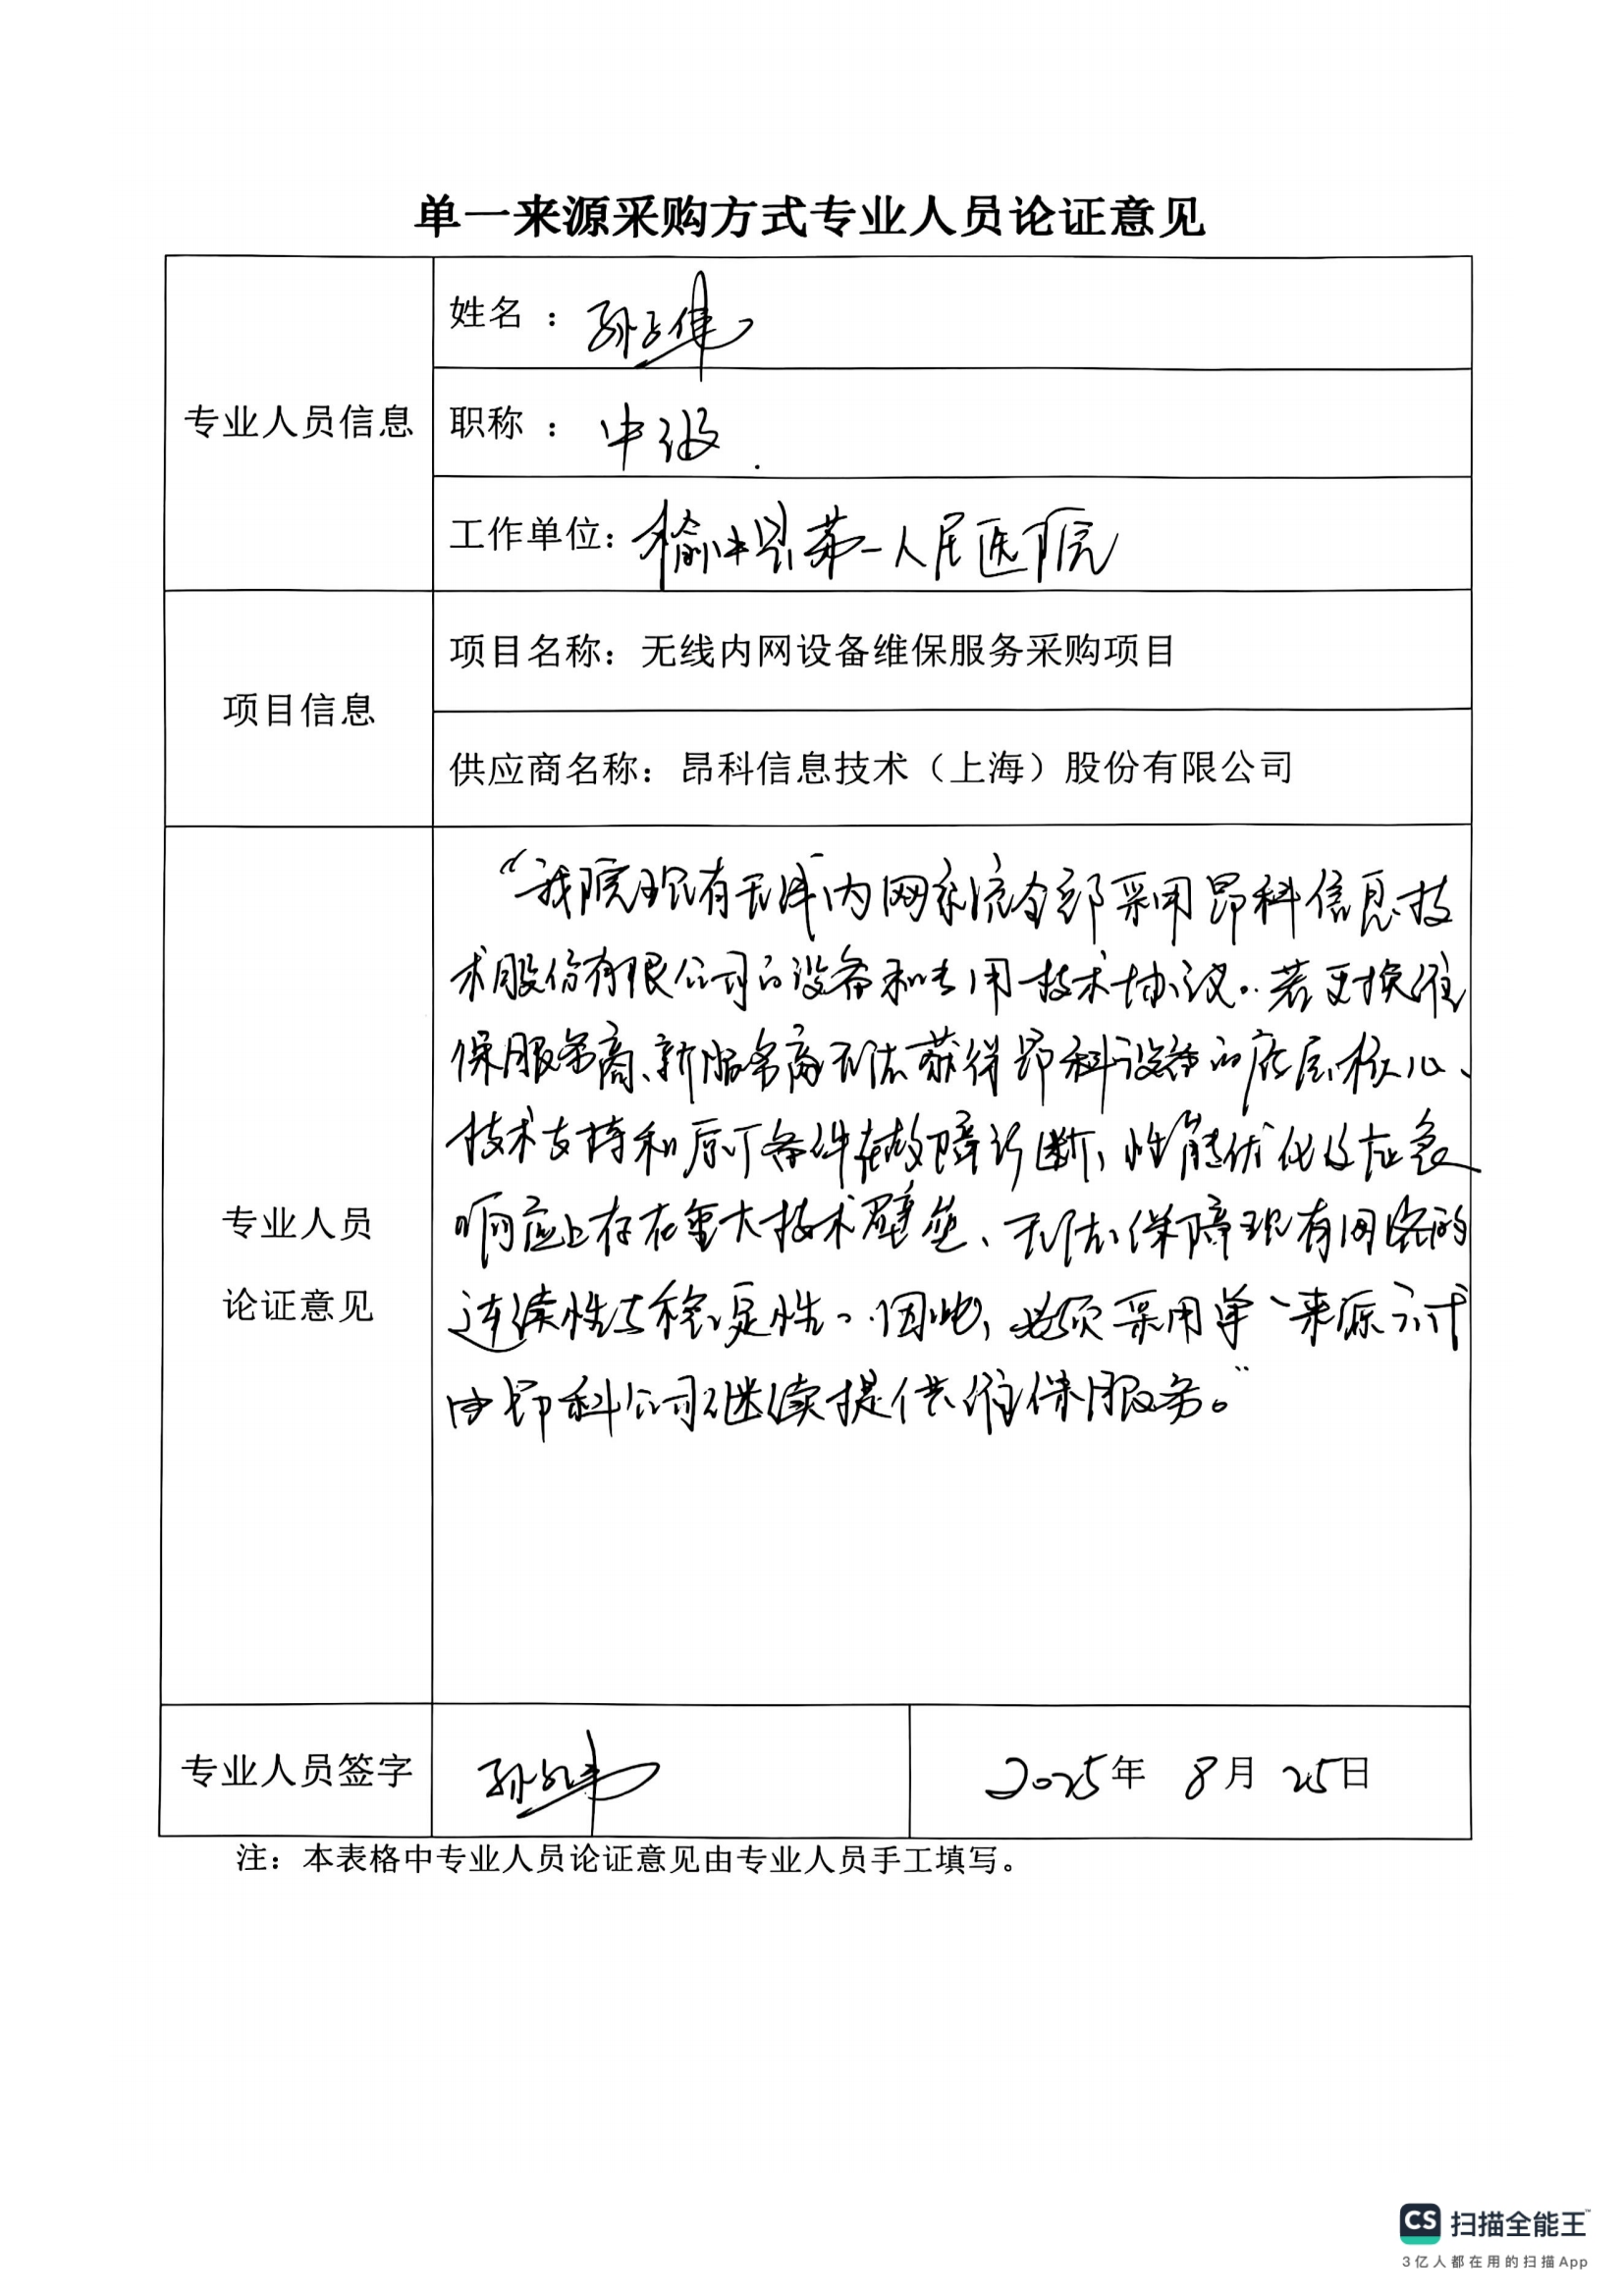 单一来源采购方式专业人员论证意见
专业人员信息
姓名 ： 孙
职称 ： 中级
工作单位：榆中县第一人民医院
项目信息
项目名称：无线内网设备维保服务采购项目
供应商名称：昂科信息技术（上海）股份有限公司
专业人员
论证意见
“我院现有无线内网系统全部采用昂科信息技
术股份有限公司的设备和专用技术协议。若更换维
保服务商、新服务商无法获得昂科设备的底层核心、
技术支持和原厂备件在故障诊断、性能优化及应急
响应上存在重大技术壁垒、无法保障现有网络的
连续性与稳定性。因此，必须采用单一来源方式
由昂科公司继续提供维保服务。”
专业人员签字
孙
2025年 8月 25日
注：本表格中专业人员论证意见由专业人员手工填写。
CS 扫描全能王™
3亿人都在用的扫描App